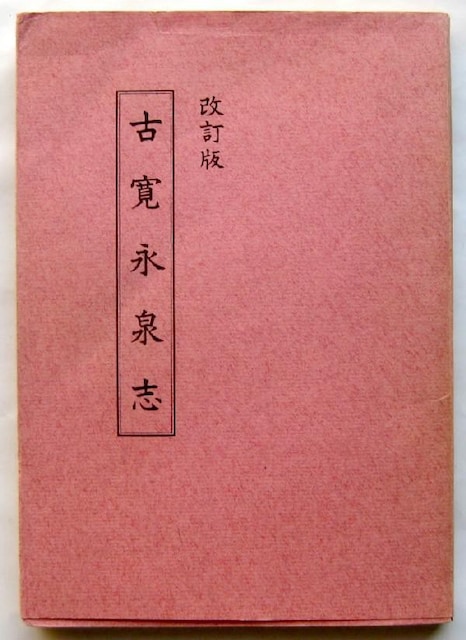 改訂版
古寛永泉志